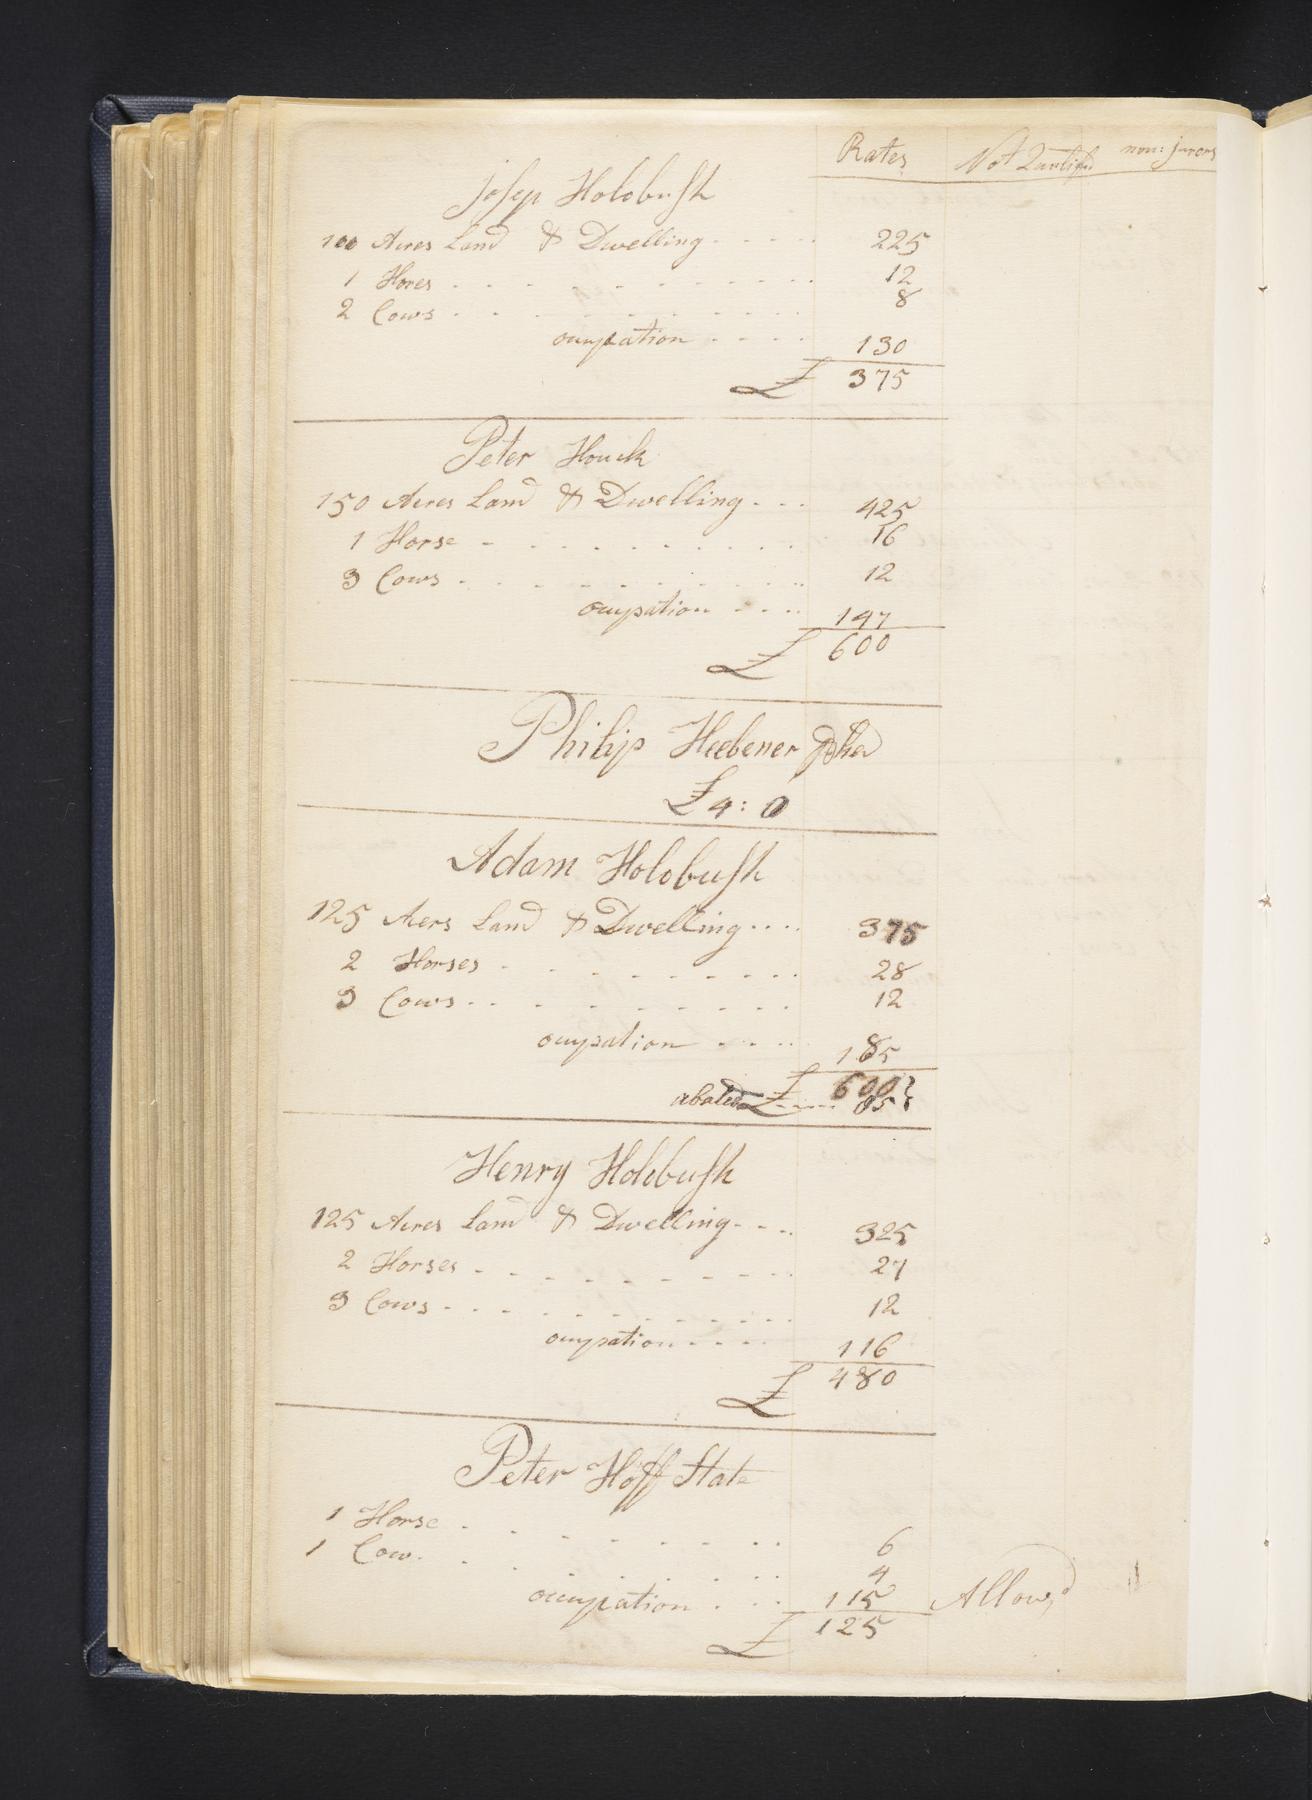 Rates Not Quallifd non: jurors
Josep Holobush
100 Acres Land & Dwelling 225
1 Hores 12
2 Cows 8
ocupation 130
£ 375
Peter Houck
150 Acres Land & Dwelling 425
1 Horse 16
3 Cows 12
ocupation 147
£ 600
Philip Heebener
£4:0
Adam Holobush
125 Acrs Land & Dwelling 375
2 Horses 28
3 Cows 12
ocupation 185
£ 600
abated 85
Henry Holobush
125 Acres Land & Dwelling 325
2 Horses 27
3 Cows 12
ocupation 116
£ 480
Peter Hoff State
1 Horse 6
1 Cow 4
occupation 115 Allowd
£ 125